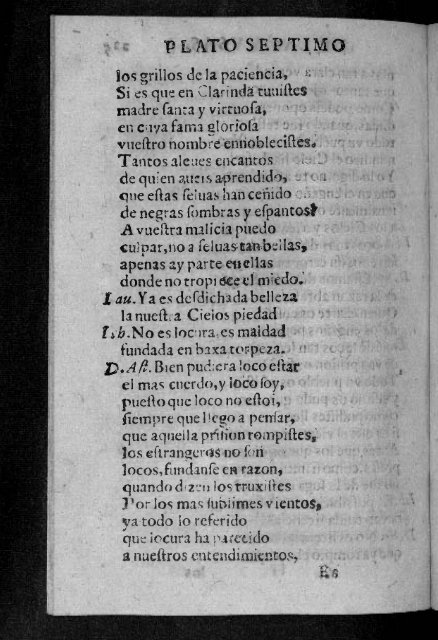 PLATO SEPTIMO
los grillos de la paciencia,
Si es que en Clarinda tuuiſtes
madre ſanta y virtuoſa,
en cuya fama glorioſa
vueſtro nombre ennobleciſtes.
Tantos aleues encantos
de quien aueis aprendido,
que eſtas ſeluas han ceñido
de negras ſombras y eſpantos?
A vueſtra malicia puedo
culpar, no a ſeluas tan bellas,
apenas ay parte en ellas
donde no tropiece el miedo.
Lau. Ya es deſdichada belleza
la nueſtra Cielos piedad
Lib. No es locura, es maldad
fundada en baxa torpeza.
D. Aſt. Bien pudiera loco eſtar
el mas cuerdo, y loco ſoy,
pueſto que loco no eſtoi,
ſiempre que llego a penſar,
que aquella priſion rompiſtes,
los eſtrangeros no ſon
locos, fundanſe en razon,
quando dizen los truxiſtes
Por los mas ſublimes vientos,
ya todo lo referido
que locura ha parecido
a nueſtros entendimientos,
Es